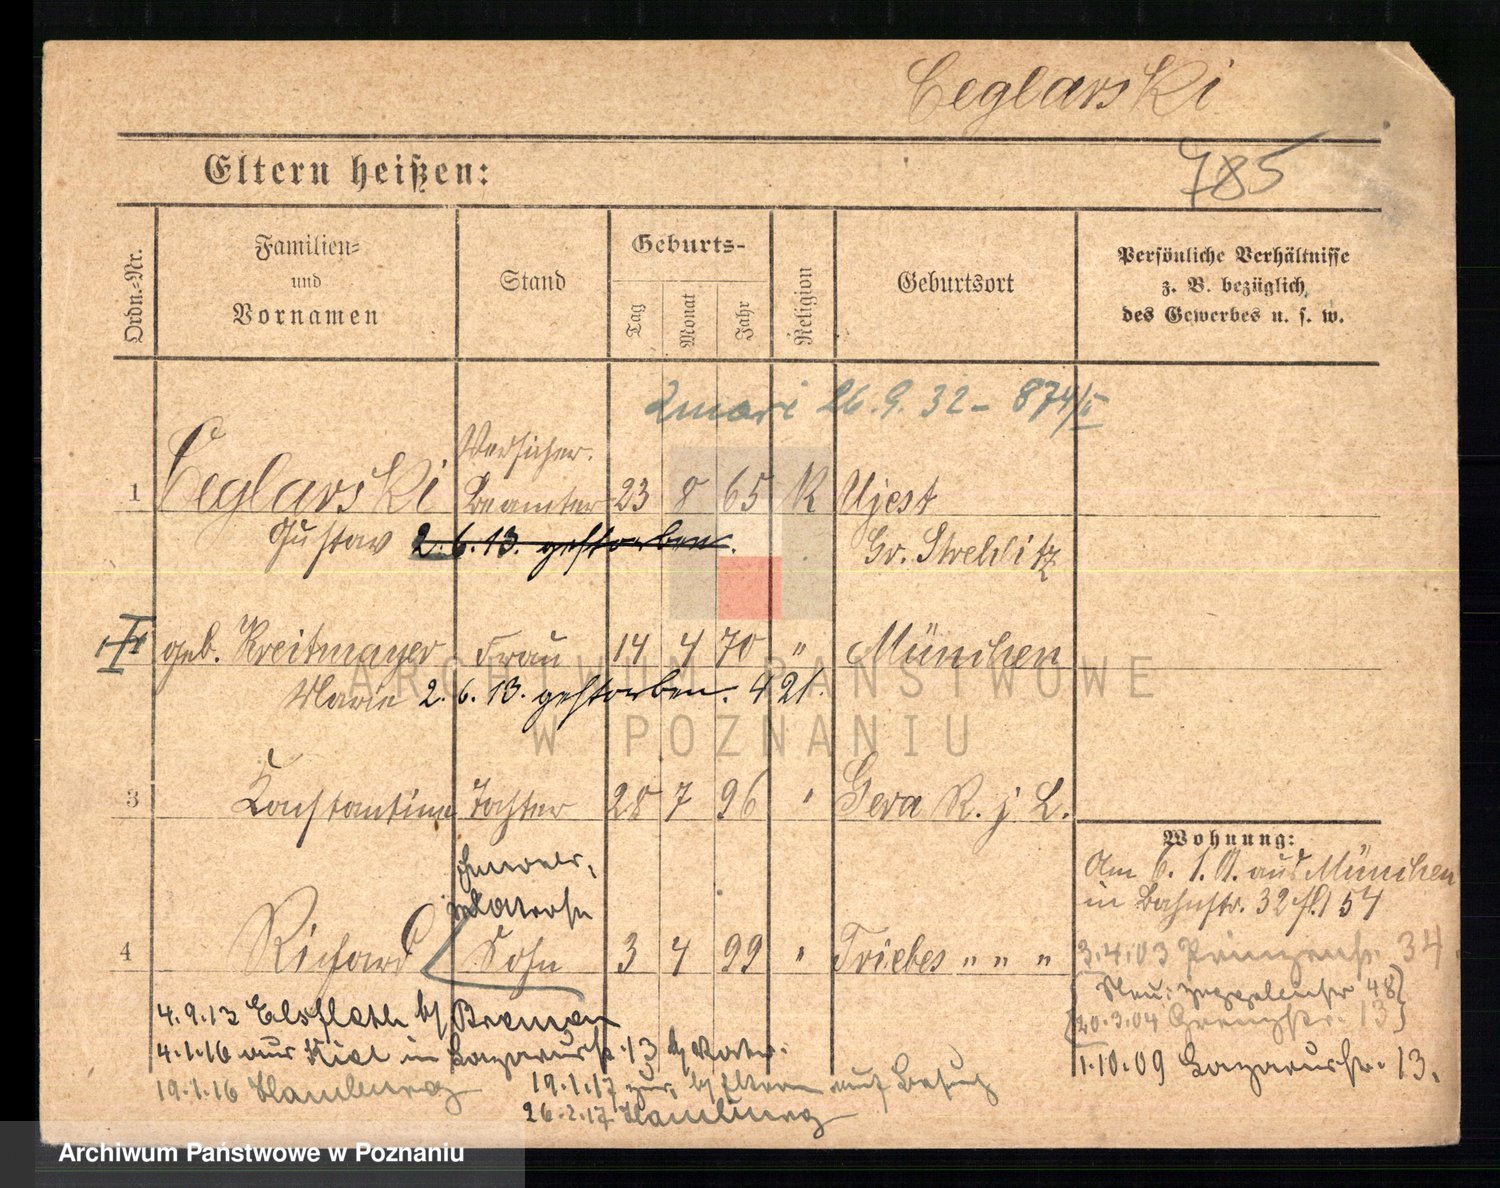 Ceglarski
Eltern heißen:
785
Ordn.-Nr.
Familien-
und
Vornamen
Stand
Geburts-
Tag
Monat
Jahr
Religion
Geburtsort
Persönliche Verhältnisse
z. B. bezüglich
des Gewerbes u. s. w.
zmarł 26.9.32 - 874/
1 Ceglarski Versicher. Beamter 23 8 65 K Ujest
Gustav 2.6.13. gestorben. Gr. Strehlitz
geb. Kreitmayer Frau 14 4 70 " München
Marie 2.6.13. gestorben. 421.
3 Konstantine Tochter 28 7 96 " Gera R. j L.
Wohnung:
Am 6. 1. 0. aus München
in Bahnstr. 32 54
4 Richard Sohn 3 4 99 " Triebes " " "
3.4.03 Prinzenstr. 34.
Neu: Zeppelinstr 48
20.3.04 Grenzstr. 13
1.10.09 Lazarusstr. 13.
4.9.13 Elsfleth b/ Bremen
4.1.16 aus Kiel in Lazarusstr. 13 b/ Vater.
19.1.16 Hamburg
19.1.17 zur. b/ Eltern auf Besuch
26.2.17 Hamburg
ARCHIWUM PAŃSTWOWE
W POZNANIU
Archiwum Państwowe w Poznaniu